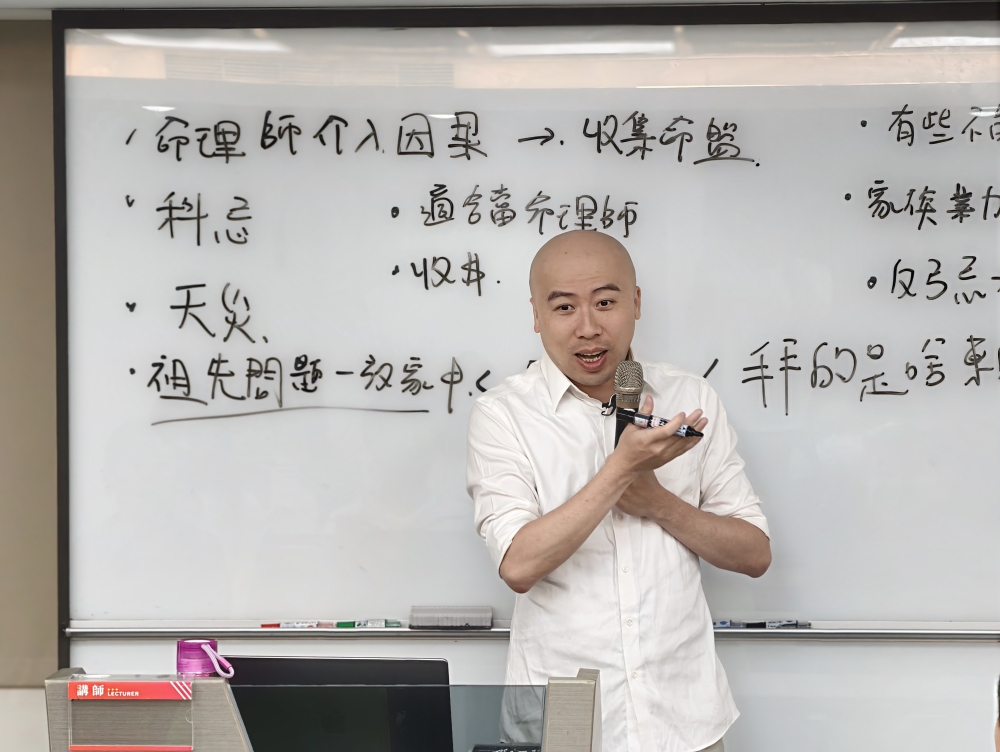 命理師介入因果 → 收集命盤.
· 科忌
· 天災.
· 祖先問題一致家中
· 適合當命理師
· 收井.
· 有些不
· 家族業力
· 反弓忌
拜的是啥東
講師 LECTURER